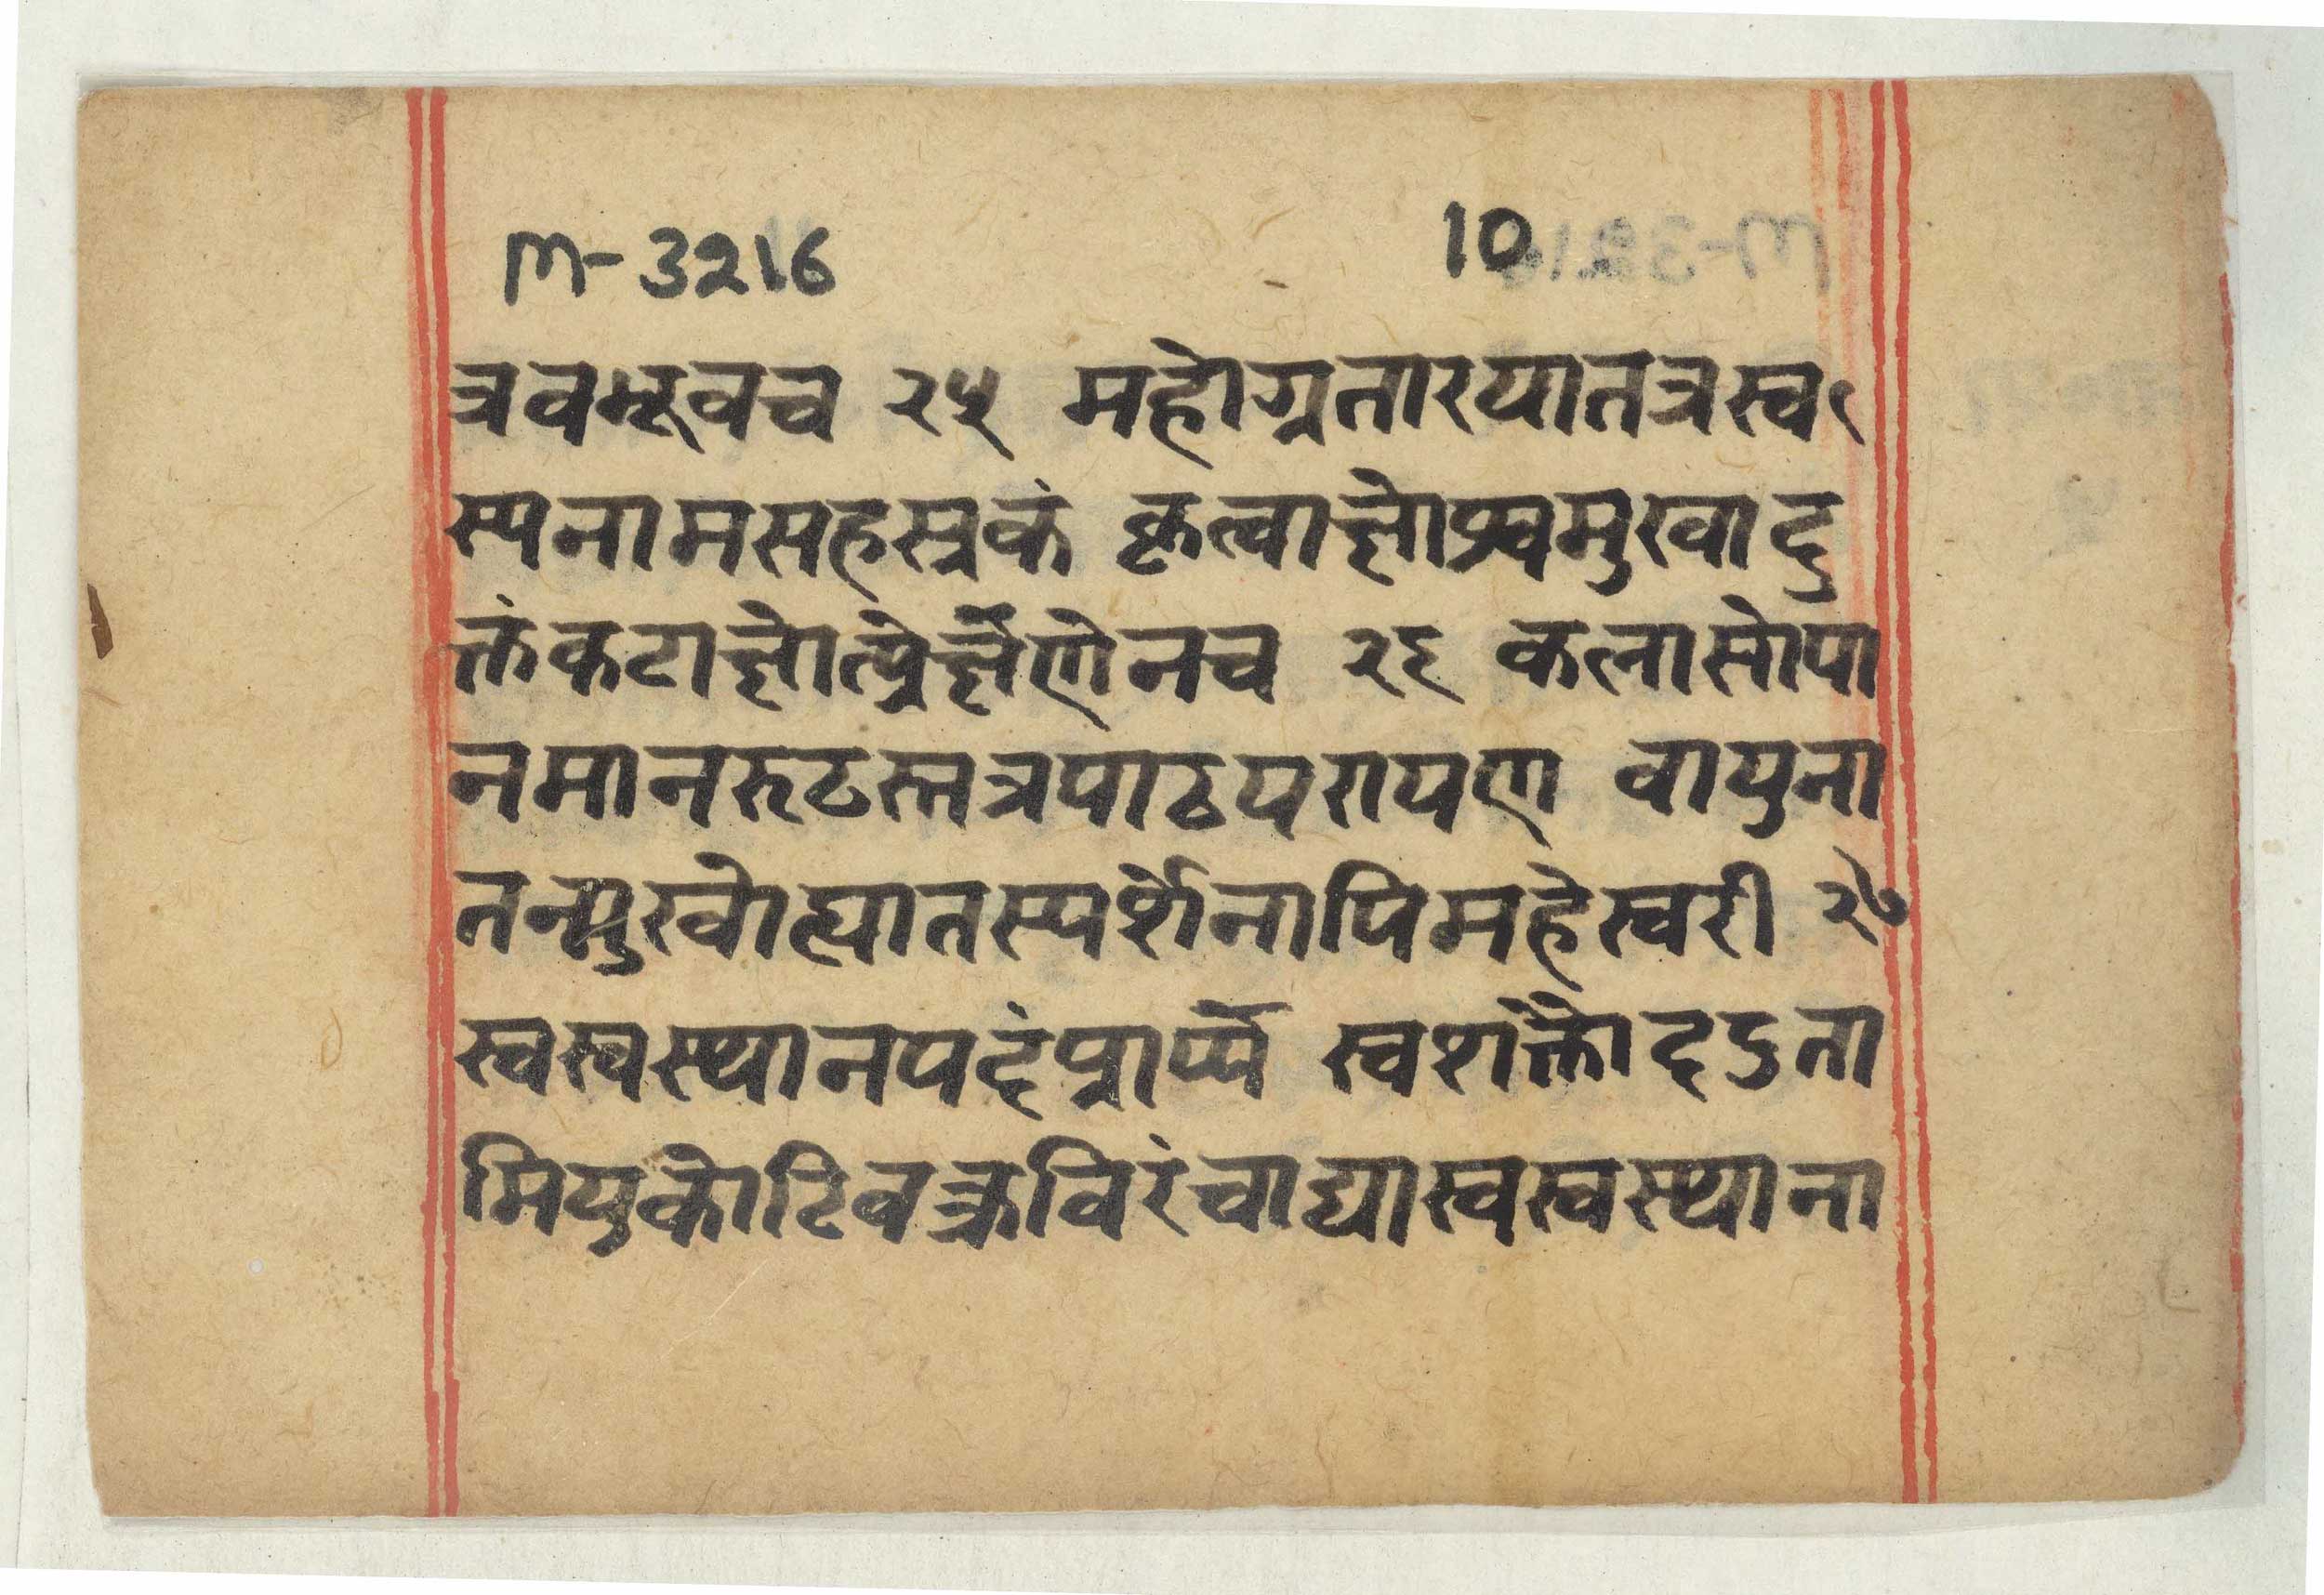 M-3216 10
त्रवभूवच २५ महोग्रतारयातत्रस्व९
स्पनामसहस्रकं कृत्वाज्ञोप्रवमुखादु
क्तंकटाज्ञोत्प्रेर्ज्ञेणेनच २६ कलासोपा
नमानरुठस्तत्रपाठपरायण वायुना
तन्मुखोत्थातस्पर्शेनापिमहेस्वरी २७
स्वस्वस्थानपदंप्रार्प्पे स्वशक्तौददुता
मियुकोटिवक्रविरंचाद्यास्वस्वस्थाना